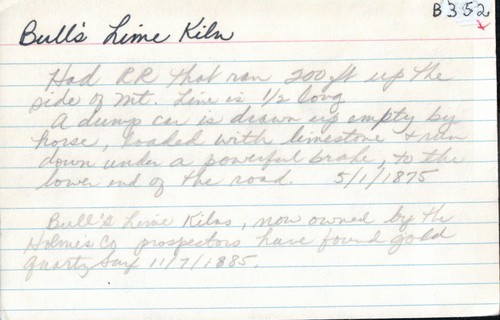 B352
Bull's Lime Kiln
Had RR that ran 200 ft up the
side of Mt. Line is 1/2 long
A dump car is drawn up empty by
horse, loaded with limestone + run
down under a powerful brake, to the
lower end of the road. 5/1/1875
Bull's Lime Kilns, now owned by the
Holmes Co prospectors have found gold
quartz 11/7/1885.